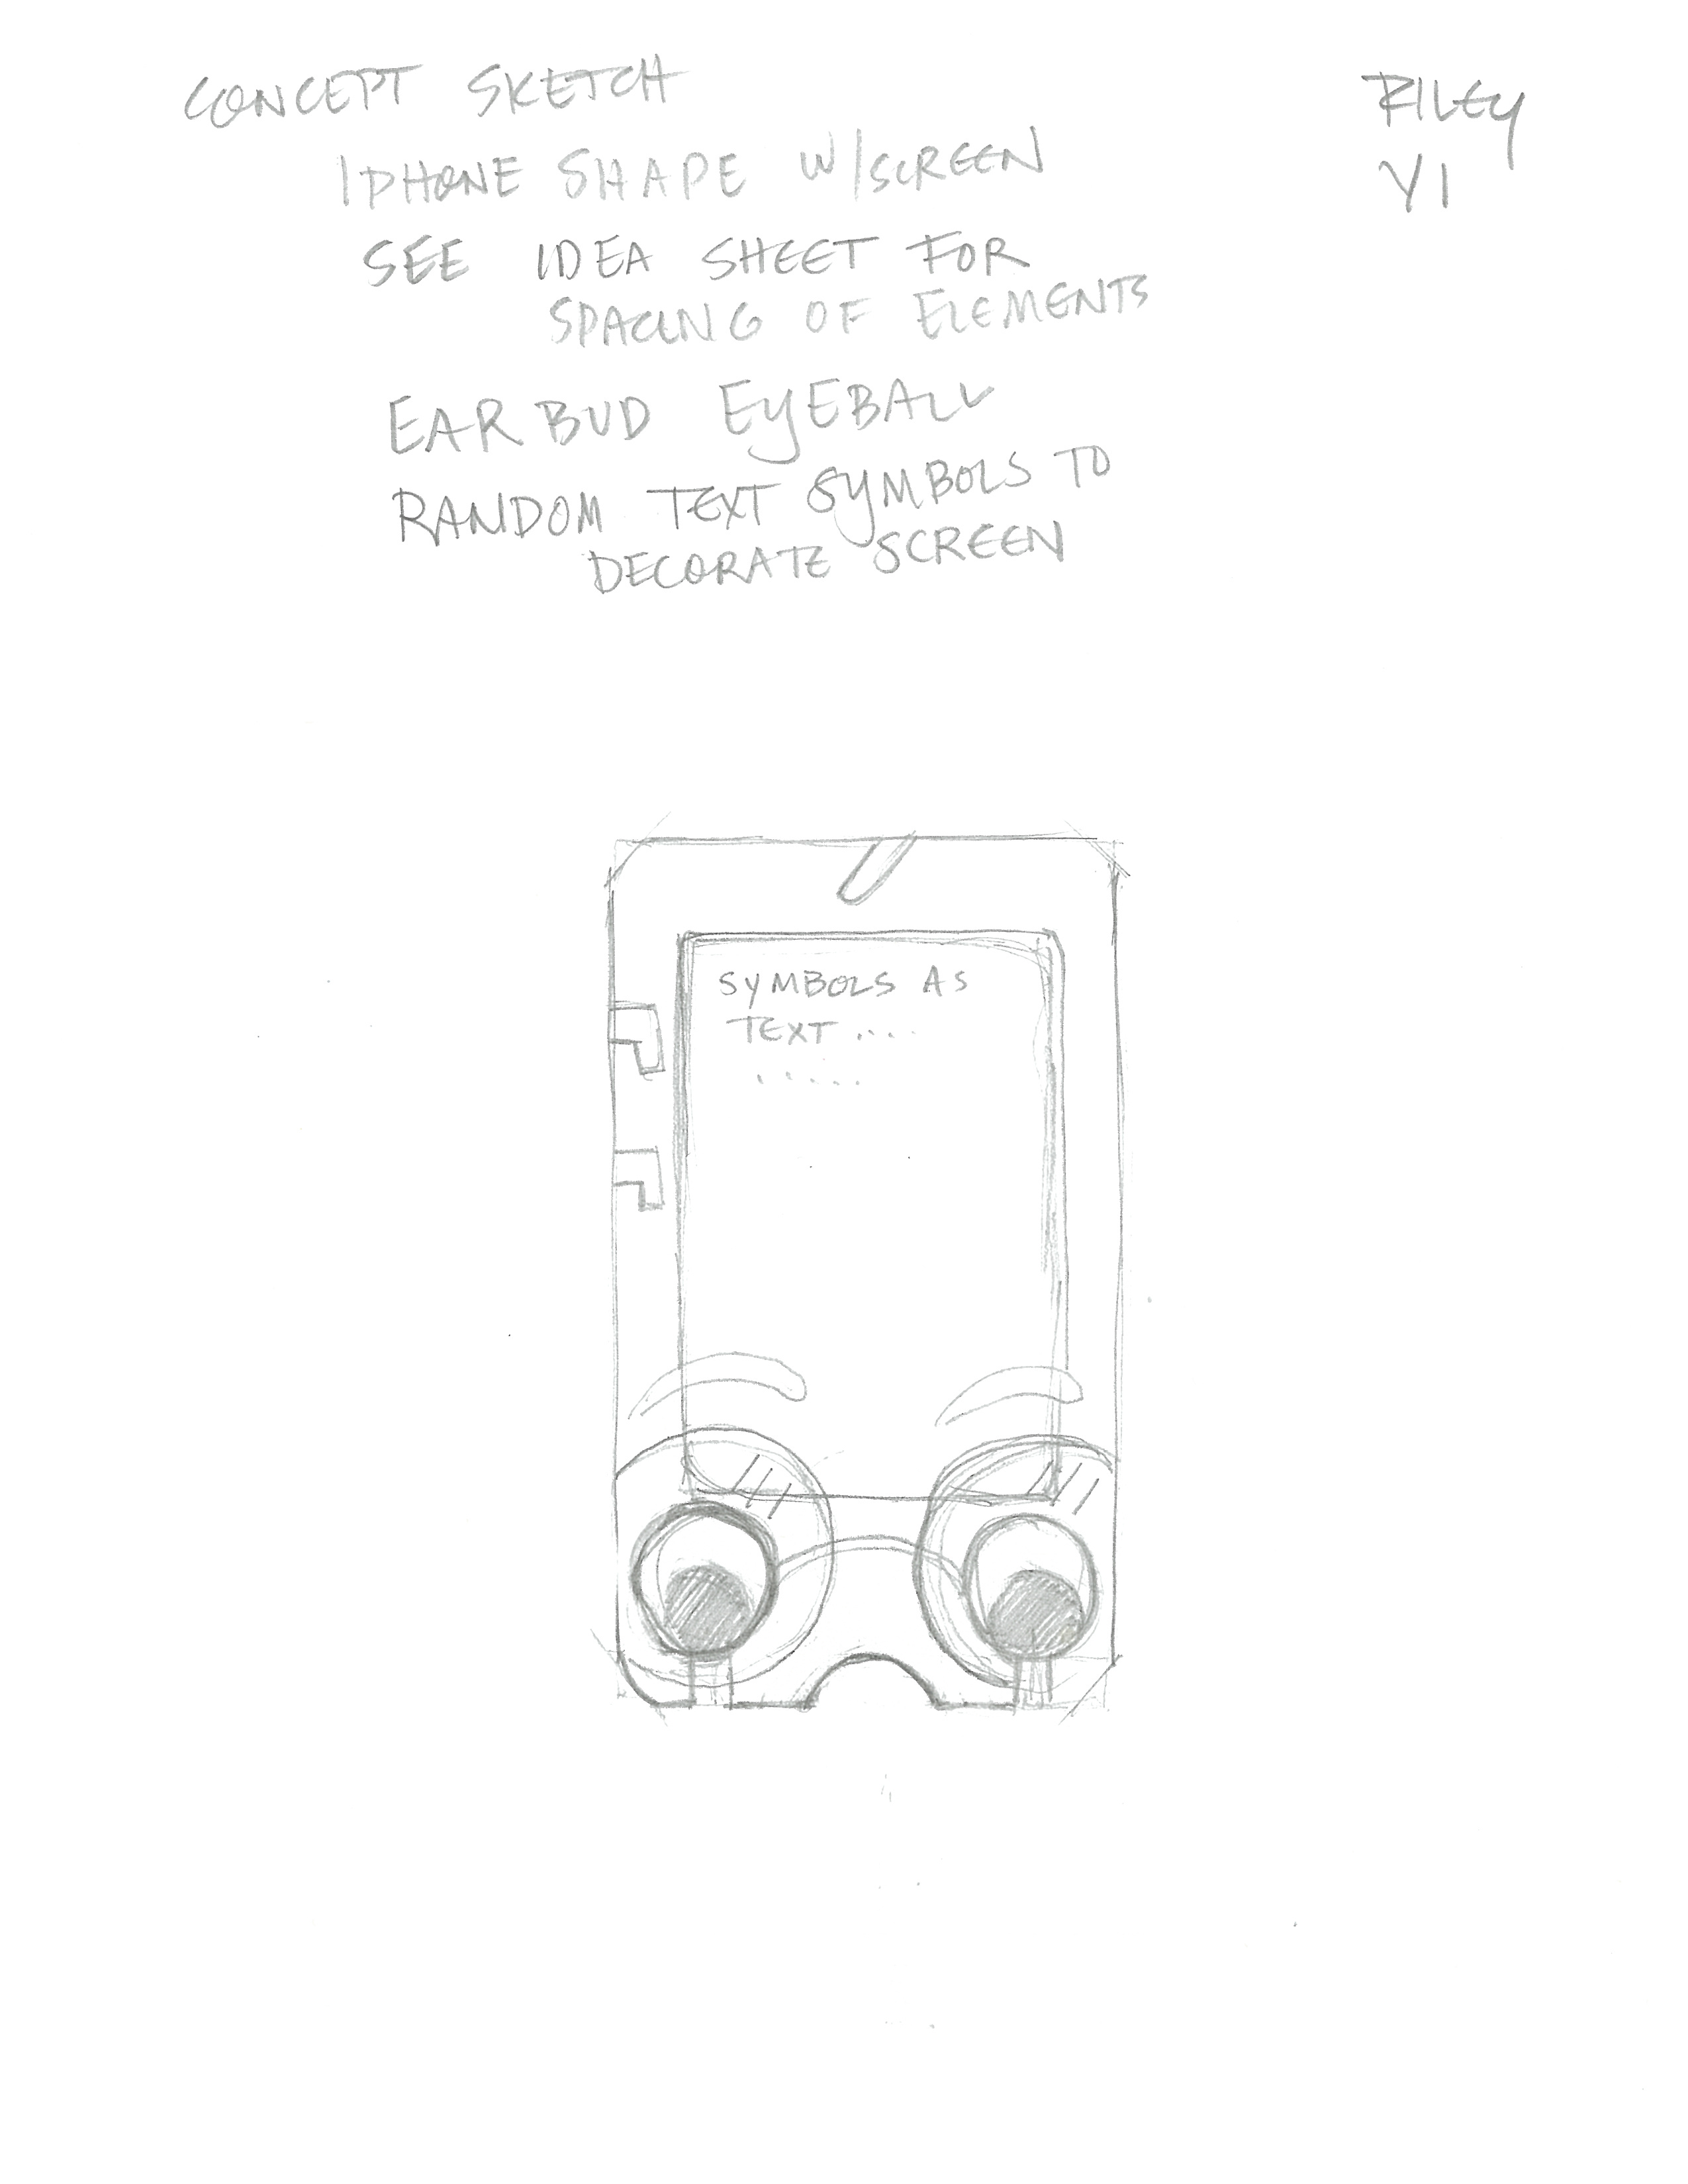 CONCEPT SKETCH
RILEY
V1
IPHONE SHAPE W/SCREEN
SEE IDEA SHEET FOR
SPACING OF ELEMENTS
EAR BUD EYEBALL
RANDOM TEXT SYMBOLS TO
DECORATE SCREEN
SYMBOLS AS
TEXT ....
.....